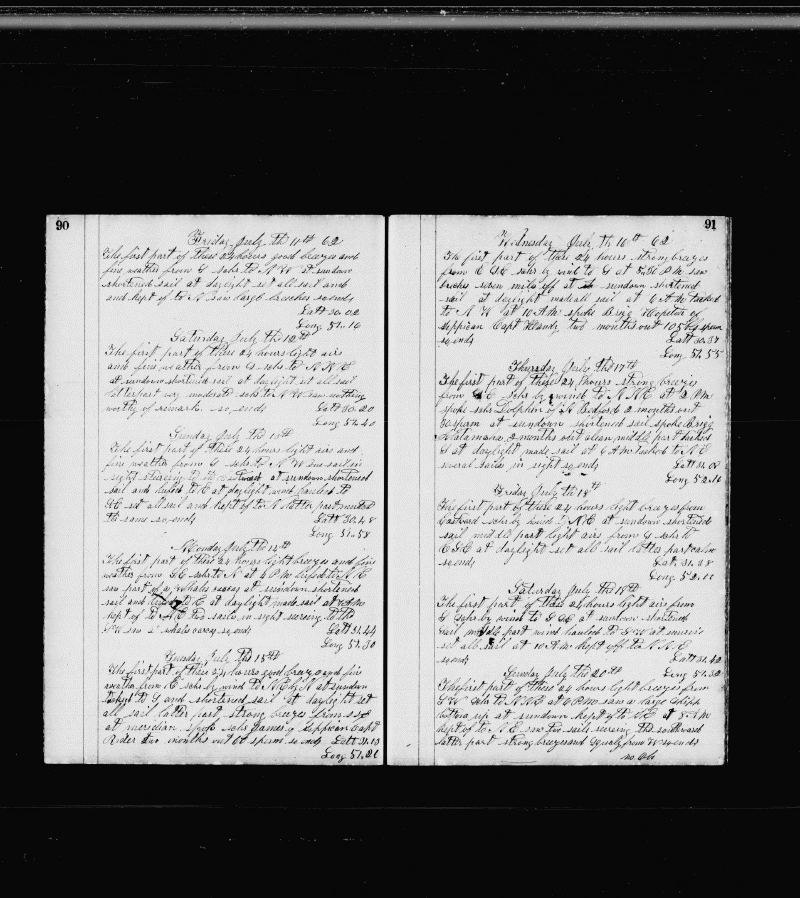 90
Friday July th 11th 62
The first part of these 24 hours good breezes and
fine weather from S sohs to N W at sundown
shortened sail at daylight set all sail and
and kept of to N saw large breaches so ends
Latt 30.02
Long 51.16
Saturday July th 12th
The first part of these 24 hours light airs
and fine weather from S sohs to N N E
at sundown shortened sail at daylight set all sail
latter part very moderate sohs to N W saw nothing
worthy of remark so ends Latt 30.20
Long 51.40
Sunday July th 13th
The first part of these 24 hours light airs and
fine weather from S sohs to N W one sail in
sight steering to the at sundown shortened
sail and to E at daylight wind hauled to
SE set all sail and kept of to N latter part
th same so ends Latt 30.48
Long 51.58
Monday July th 14th
The first part of these 24 hours light breezes and fine
weather from SE sohs to N at 4 P.M. to N E
saw part of a whales at sundown shortened
sail and to E at daylight made sail at 7 A.M
kept of to NE two sails in sight to the
SW saw 2 whales so ends Latt 31.44
Long 51.30
Tuesday July the 15th
The first part of these 24 hours good breeze and fine
weather from E sohs by wind to N E by N at sundown
to S and shortened sail at daylight set
all sail latter part strong breezes from
at meridian spoke sohr James of Sippican Capt
Rider two months out 60 sperm so ends Latt 31.13
Long 51.21
91
Wednesday July th 16th 62
The first part of these 24 hours strong breezes
from E SE sohs by wind to S at 5,30 P.M. saw
seven miles off at sundown shortened
sail at daylight made all sail at 6 A.M tacked
to N W at 10 A.M spoke Brig Hopeton of
Sippican Capt Handy two months out 105 bbls sperm
so ends Latt 30.37
Long 51.55
Thursday July th 17th
The first part of these 24 hours strong breezes
from SE sohs by wind to N N E at 2 P.M
spoke sohr Dolphin of N Bedford 2 months out
sperm at sundown shortened sail spoke Brig
2 months out clean middle part tacked
S at daylight made sail at 6 A.M tacked to N E
several sails in sight so ends Latt 31.08
Long 52.10
Friday July th 18th
The first part of these 24 hours light breezes from
Eastward sohs by wind to N E at sundown shortened
sail middle part light airs from S sohs to
E SE at daylight set all sail latter part calm
so ends Latt 31.38
Long 52.10
Saturday July the 19th
The first part of these 24 hours light airs from
S sohs by wind to S SE at sundown shortened
sail middle part wind hauled to SW at sunrise
set all sail at 10 A.M kept off to N N E
so ends Latt 31.42
Sunday July the 20th Long 51.32
The first part of these 24 hours light breezes from
S W sohs to N N E at 6 P.M saw a large shipp
bottom up at sundown kept of to NE at 5 A.M
kept of to N E saw two sails to southward
latter part strong breezes and squaly from W so ends
no ob